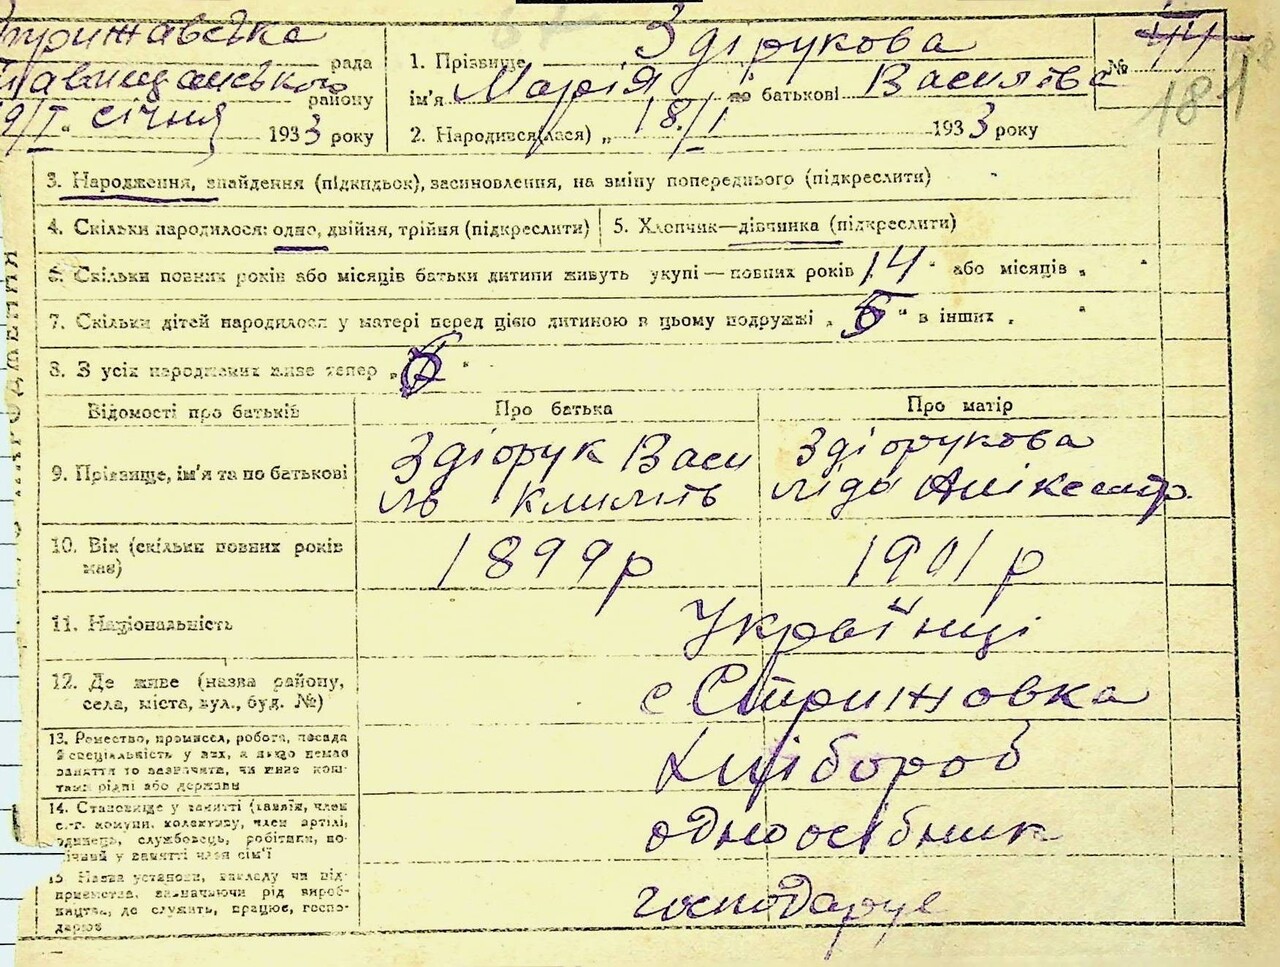 Стрижавська рада
Тавищанського району
19/I „ січня 1933 року
1. Прізвище Здірукова
ім'я Марія по батькові Василівє
2. Народився(лася) „ 18/I 1933 року
№ 44
181
3. Народження, знайдення (підкидьок), засиновлення, на зміну попереднього (підкреслити)
4. Скільки народилося: одно, двійня, трійня (підкреслити)
5. Хлопчик—дівчинка (підкреслити)
6. Скільки повних років або місяців батьки дитини живуть укупі — повних років 14 " або місяців „ "
7. Скільки дітей народилося у матері перед цією дитиною в цьому подружжі „ 5 " в інших „ "
8. З усіх народжених живе тепер „ "
Відомості про батьків
Про батька
Про матір
9. Прізвище, ім'я та по батькові
Здіорук Васи
ль Климть
Здіорукова
Ліда Анікестр.
10. Вік (скільки повних років має)
1899 р
1901 р
11. Національність
Українці
12. Де живе (назва району,
села, міста, вул., буд. №)
с Стрижовка
13. Ремество, промисел, робота, посада
й спеціальність у них, а якщо немає
заняття то зазначити, чи живе кош-
тами рідні або держави
Хлібороб
14. Становище у занятті (хазяїн, член
с.-г. комуни, колективу, член артілі,
одинець, службовець, робітник, по-
мічний у занятті член сім'ї
одноосібник
15. Назва установи, закладу чи під-
приємства, зазначаючи рід вироб-
ництва, де служить, працює, госпо-
дарює
господарує